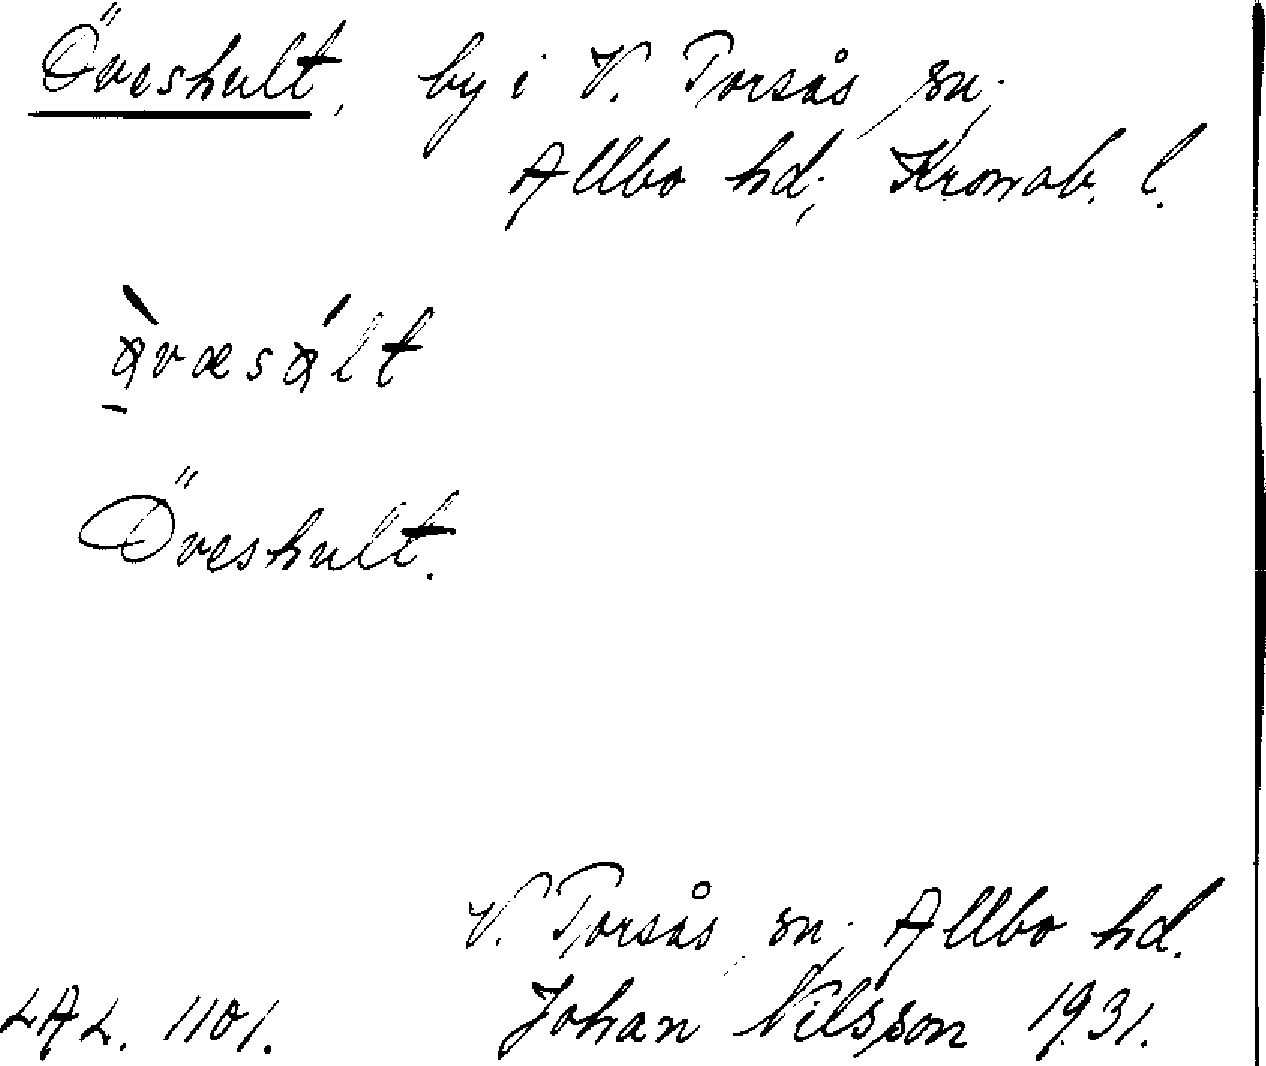 Öveshult, by i V. Torsås sn;
Allbo hd; Kronob. l.
Öveshult.
V. Torsås sn; Allbo hd.
LAL. 1101. Johan Nilsson 1931.